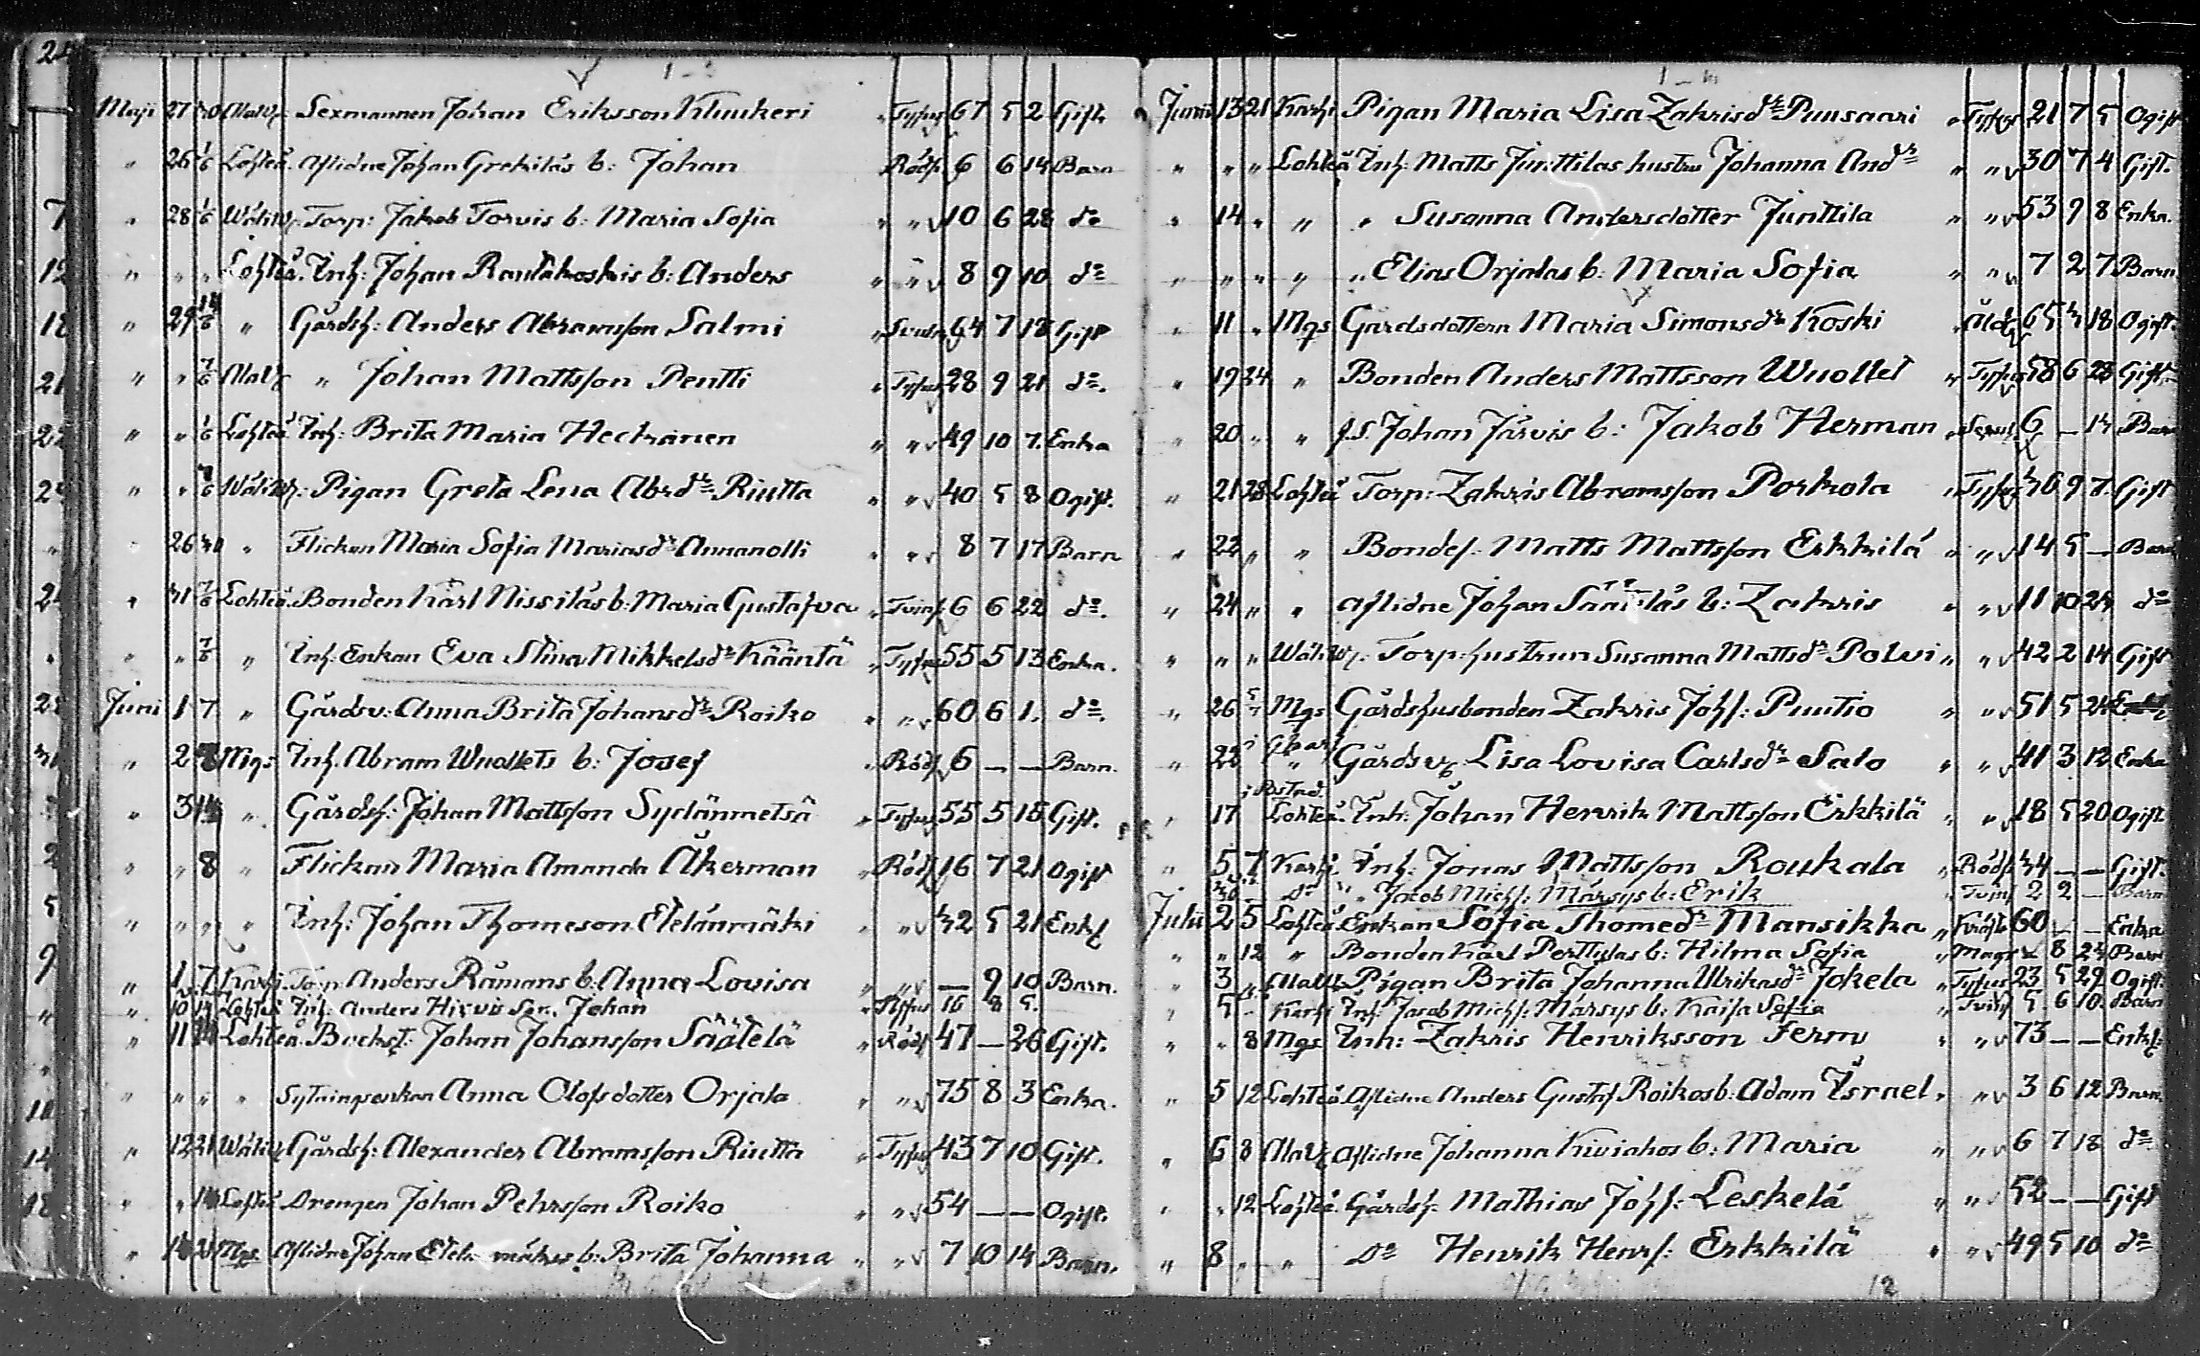 Maji 27 30 Alaw: Sexmannen Johan Eriksson Klemkeri " Typhus 67 5 2 Gift
" 26 1/6 Lohteå. Aflidne Johan Grekiläs b: Johan Rödf 6 6 14 Barn
" 28 1/6 Wäliw: Torp: Jakob Torvis b: Maria Sofia " " 10 6 28 do
" " " Lohteå. Inh: Johan Rautakoskis b: Anders " " 8 9 10 do
" 29 14/6 " Gårdsh: Anders Abramsson Salmi " 64 7 18 Gift
" " 7/6 Alaw " Johan Mattsson Pentti " Typhus 28 9 21 do.
" " 1/6 Lohteå Inh: Brita Maria Heckanen " " 49 10 7. Enka
" " 7/6 Wäliw: Pigan Greta Lena Abrdr Riutta " " 40 5 8 Ogift.
" 26 30 " Flickan Maria Sofia Mariasdr Annanolli " " 8 7 17 Barn
" 31 7/6 Lohteå. Bonden Karl Nissiläs b: Maria Gustafva " Tvinf 6 6 22 do.
" " 7/6 " Inh: Enkan Eva Stina Mikkelsdr Kääntä " Typhus 55 5 13 Enka.
Juni 1 7 " Gårdsv: Anna Brita Johansdr Roiko " " 60 6 1. do.
" 2 8 Mgs Inh. Abram Wuollets b: Josef " Rödf 6 — — Barn.
" 3 14 " Gårdsh: Johan Mattsson Sydänmetsä " Typhus 55 5 15 Gift.
" " 8 " Flickan Maria Amanda Åkerman " Rödf 16 7 21 Ogift
" " " " Inh: Johan Thomeson Eteläumäki " " 32 5 21 Enkl
" 1 7 Karhi. Torp. Anders Råmans b: Anna Lovisa " " — 9 10 Barn.
" 10 14 Lohteå Inh. Anders Hirvis Son. Johan " Typhus 16 8 5.
" 11 14 Lohteå. Backst: Johan Johansson Säätelä " Rödf 47 — 26 Gift.
" " " " Sytningsenkan Anna Olofsdotter Orjala " " 75 8 3 Enka.
" 12 21 Wäliw Gårdsh: Alexander Abramsson Riutta " Typhus 43 7 10 Gift.
" " 14 Lohteå Drengen Johan Pehrsson Roiko " " 54 — — Ogift.
" 14 21 Mgs Aflidne Johan Etelämäkis b: Brita Johanna " " 7 10 14 Barn.
Juni 13 21 Karhi Pigan Maria Lisa Zakrisdr Punsaari " Typhus 21 7 5 Ogift
" " " Lohteå Inh: Matts Junttilas hustru Johanna Anddr " " 30 7 4 Gift.
" 14 " " " Susanna Andersdotter Junttila " " 53 9 8 Enka.
" " " " " Elias Orjalas b: Maria Sofia " " 7 2 7 Barn
" 11 " Mgs Gårdsdottern Maria Simonsdr Koski " Åld. 65 3 18 Ogift.
" 19 24 " Bonden Anders Mattsson Wuollet " Typhus 58 6 28 Gift
" 20 " " J.S. Johan Järvis b: Jakob Herman " 6 — 14 Barn
" 21 28 Lohteå Torp: Zakris Abramsson Porkola " Typhus 36 9 7. Gift
" 22 " " Bondes. Matts Mattsson Erkkilä " " 14 5 — Barn
" 24 " " aflidne Johan Säätelås b: Zakris " " 11 10 24 do
" " " Wäliw: Torp:hustrun Susanna Mattsdr Polvi " " 42 2 14 Gift
" 26 Mgs Gårdshusbonden Zakris Johs: Puutio " " 51 5 24
" 22 i Gkarl " Gårdsv Lisa Lovisa Carlsdr Salo " " 41 3 12 Enka
" 17 Lohteå. Inh: Johan Henrik Mattsson Erkkilä " " 18 5 20 Ogift
" 5 7 Karhi Inh: Jonas Mattsson Roukala " Rödf 34 — — Gift.
" 30 Do " Jacob Michs: Märsys b: Erik " Tvinf 2 2 — Barn
Julii 2 5 Lohteå Enkan Sofia Thomedr Mansikka " Kräfta 60 — — Enka
" " 12 " Bonden Karl Perttulas b: Hilma Sofia " Mags — 8 24 Barn
" 3 " Alaw Pigan Brita Johanna Ulrikasdr Jokela " Typhus 23 5 29 Ogift.
" 5 - Karhi Inh: Jacob Michs: Märsys b: Kaisa Sofia " Tvinf 5 6 10. Barn
" " 8 Mgs Inh: Zakris Henriksson Ferm " " 73 — — Enkl:
" 5 12 Lohteå Aflidne Anders Gustaf Roikos b: Adam Israel. " " 3 6 12 Barn.
" 6 8 Alaw Aflidne Johanna Kiviahos b: Maria " " 6 7 18 do
" " 12 Lohteå. Gårdsh: Mathias Johs: Leskelä " " 52 — — Gift
" 8 " " Do Henrik Henrs: Erkkilä " " 49 5 10 do
12